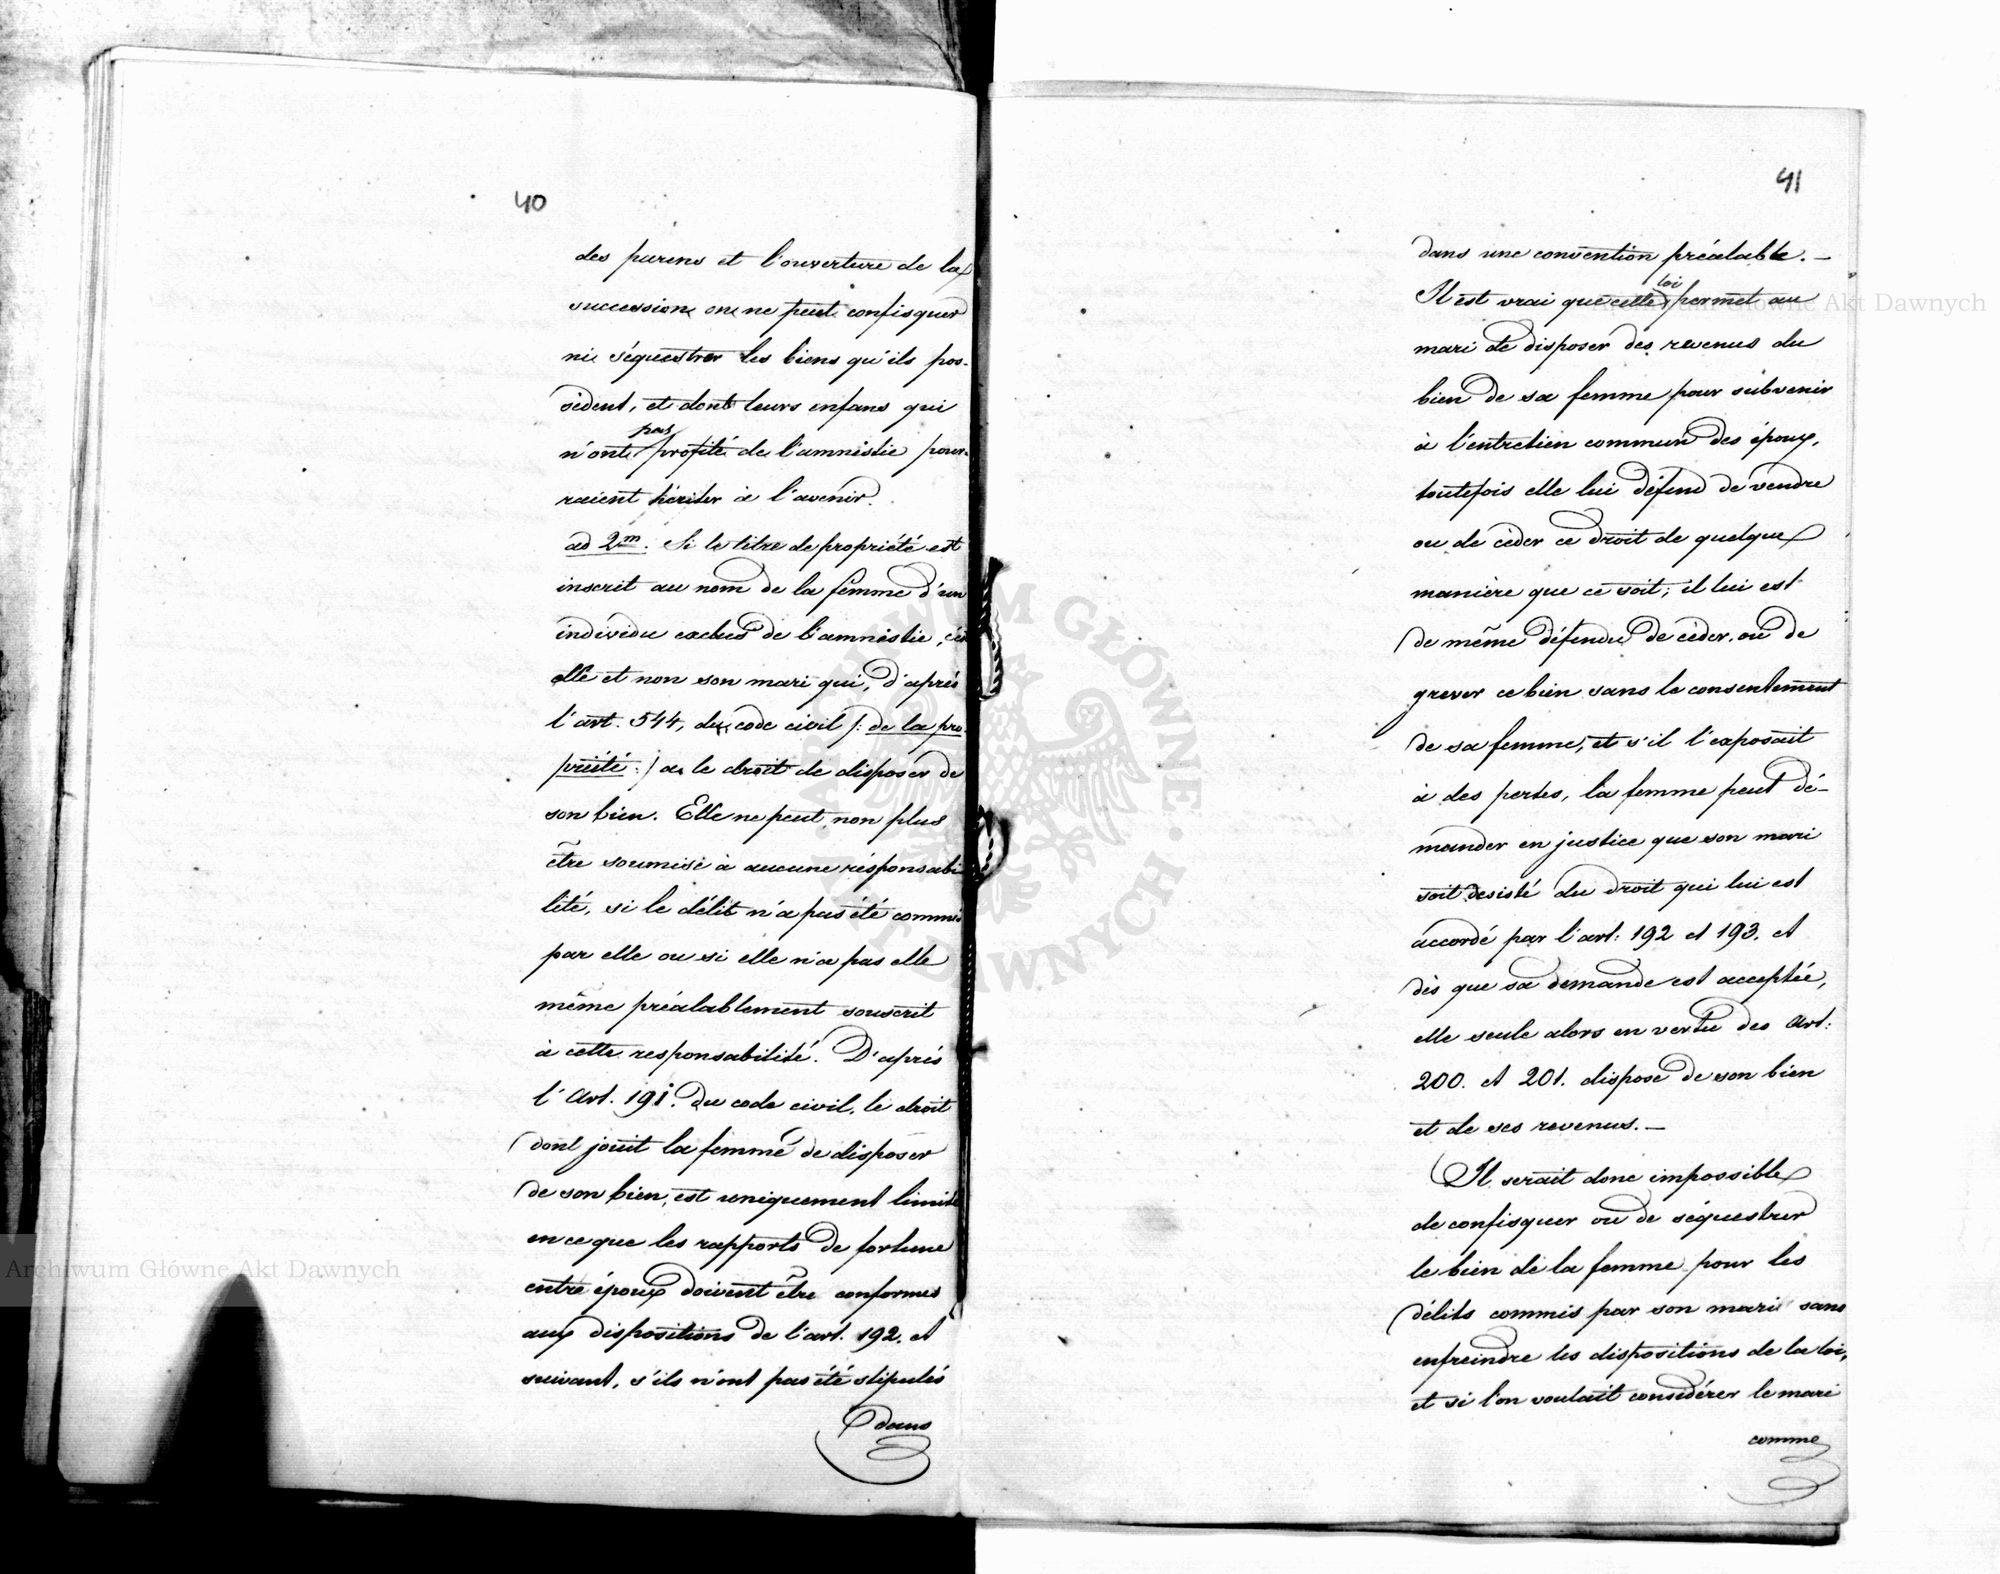 40
des parens et l'ouverture de la
succession on ne peut confisquer
ni séquestrer les biens qu'ils pos-
sèdent, et dont leurs enfans qui
n'ont pas profité de l'amnistie pour-
raient hériter à l'avenir.
ad 2m. Si le titre de propriété est
inscrit au nom de la femme d'un
individu exclus de l'amnistie, c'est
elle et non son mari qui, d'après
l'art. 544, du code civil /: de la pro-
priété :/ a le droit de disposer de
son bien. Elle ne peut non plus
être soumise à aucune résponsabi-
lité, si le délit n'a pas été commis
par elle ou si elle n'a pas elle
même préalablement souscrit
à cette responsabilité. D'après
l'Art. 191. du code civil, le droit
dont jouit la femme de disposer
de son bien, est uniquement limité
en ce que les rapports de fortune
entre époux doivent être conformes
aux dispositions de l'art. 192. et
suivant, s'ils n'ont pas été stipulés
dans
41
dans une convention préalable. —
Il est vrai que cette loi permet au
mari de disposer des revenus du
bien de sa femme pour subvenir
à l'entretien commun des époux,
toutefois elle lui défend de vendre
ou de céder ce droit de quelque
manière que ce soit; il lui est
de même défendu de céder, ou de
grever ce bien sans le consentement
de sa femme, et s'il l'exposait
à des pertes, la femme peut dé-
mander en justice que son mari
soit desisté du droit qui lui est
accordé par l'art: 192 et 193. et
dès que sa demande est acceptée,
elle seule alors en vertu des Art:
200. et 201. dispose de son bien
et de ses revenus. —
Il serait donc impossible
de confisquer ou de séquestrer
le bien de la femme pour les
délits commis par son mari sans
enfreindre les dispositions de la loi,
et si l'on voulait considérer le mari
comme
Archiwum Główne Akt Dawnych
Archiwum Główne Akt Dawnych
ARCHIWUM GŁÓWNE · AKT DAWNYCH ·